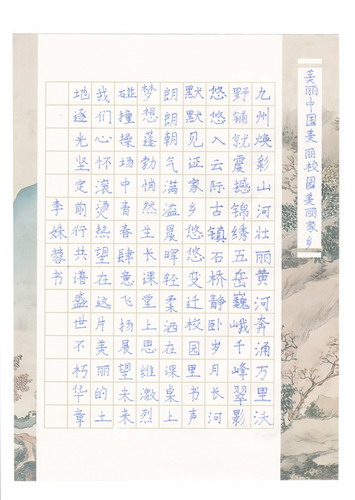 美丽中国美丽校园美丽家乡
九州焕彩山河壮丽黄河奔涌万里沃
野铺就震撼锦绣五岳巍峨千峰翠影
悠悠入云际古镇石桥静卧岁月长河
默默见证家乡悠悠变迁校园里书声
朗朗朝气满溢晨晖轻柔洒在课桌上
梦想蓬勃悄然生长课堂上思维激烈
碰撞操场中青春肆意飞扬展望未来
我们心怀滚烫热望在这片美丽的土
地逐光坚定前行共谱盛世不朽华章
李姝蓉书